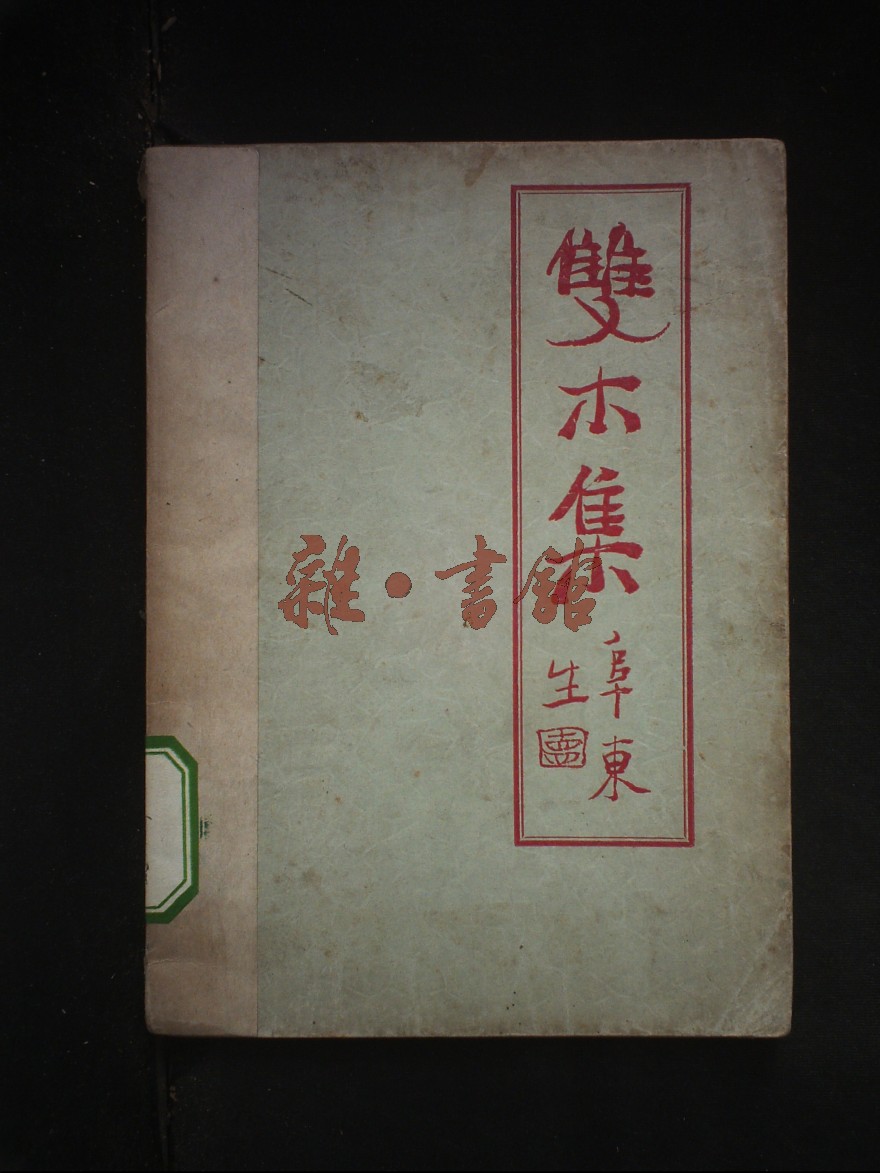 雙木集
阜東
生
雜·書館